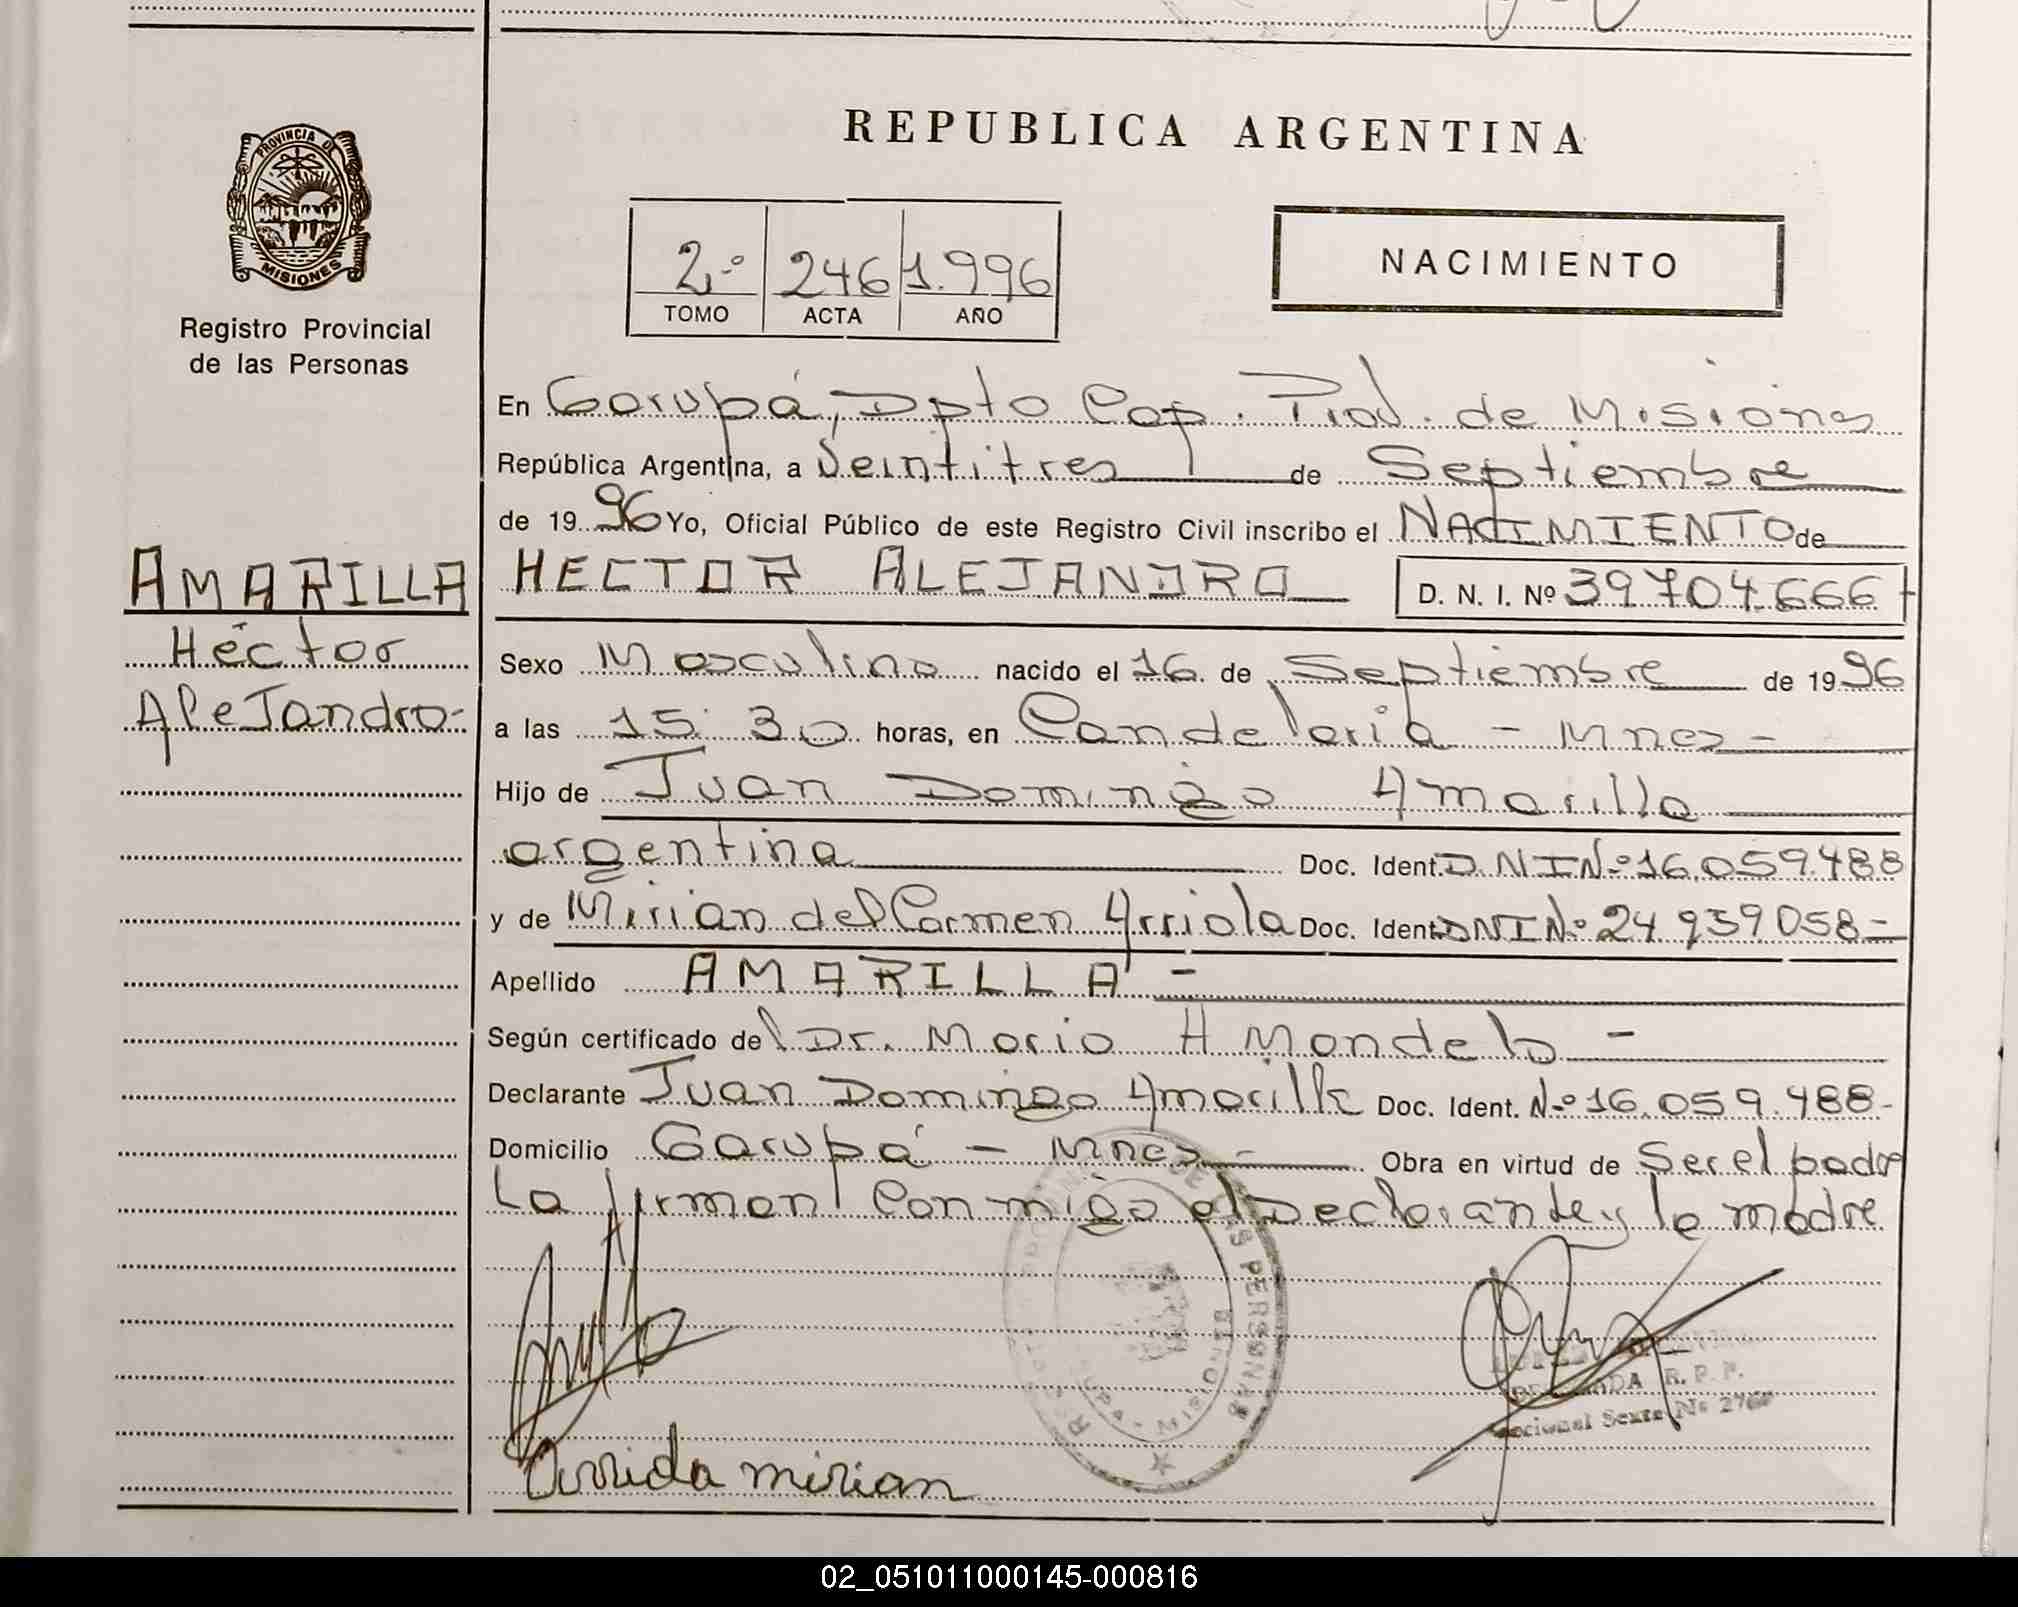 PROVINCIA DE
MISIONES
Registro Provincial
de las Personas
AMARILLA
Héctor
AleJandro-
REPUBLICA ARGENTINA
2º 246 1.996
TOMO ACTA AÑO
NACIMIENTO
En Garupá, Dpto Cap. Prov. de Misiones
República Argentina, a Veintitres de Septiembre
de 1996 Yo, Oficial Público de este Registro Civil inscribo el NACIMIENTO de
HECTOR ALEJANDRO D. N. I. Nº 39704.666
Sexo Masculino nacido el 16 de Septiembre de 1996
a las 15: 30 horas, en Candelaria - Mnes -
Hijo de Juan Domingo Amarilla
argentina Doc. Ident. D.NI Nº 16.059.488
y de Mirian del Carmen Arriola Doc. Ident. DNI Nº 24.939058-
Apellido AMARILLA -
Según certificado del Dr. Mario H Mondelo -
Declarante Juan Domingo Amarilla Doc. Ident. Nº 16.059.488-
Domicilio Garupá - Mnes - Obra en virtud de Ser el padre
La firman conmigo el Declarante y la madre
PERSONAS
R. P. P.
Nº
mirian
02_051011000145-000816